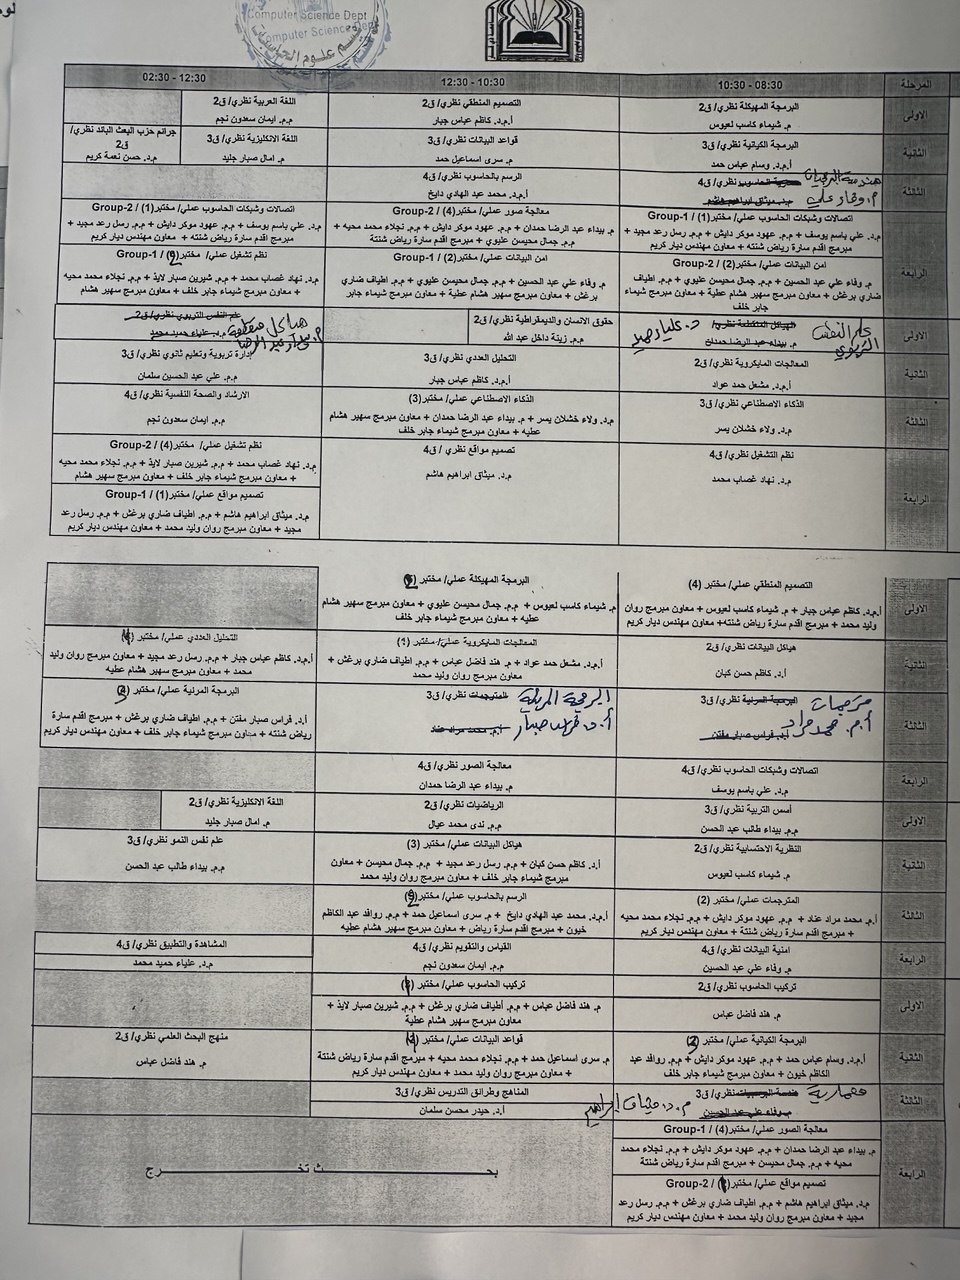 Computer Science Dept
Computer Science Dept
قسم علوم الحاسبات
المرحلة
10:30 - 08:30
12:30 - 10:30
02:30 - 12:30
الاولى
البرمجة المهيكلة نظري/ ق2
م. شيماء كاسب لعيوس
التصميم المنطقي نظري/ ق2
أ.م.د. كاظم عباس جبار
اللغة العربية نظري/ ق2
م.م. ايمان سعدون نجم
الثانية
البرمجة الكيانية نظري/ ق3
أ.م.د. وسام عباس حمد
قواعد البيانات نظري/ ق3
م. سرى اسماعيل حمد
اللغة الانكليزية نظري/ ق3
م. امال صبار جليد
جرائم حزب البعث البائد نظري/ ق2
م.د. حسن نعمة كريم
الثالثة
هندسة البرمجيات
معمارية الحاسوب نظري/ ق4
م. وفاء علي
م.د. ميثاق ابراهيم هاشم
الرسم بالحاسوب نظري/ ق4
أ.م.د. محمد عبد الهادي دايخ
الرابعة
اتصالات وشبكات الحاسوب عملي/ مختبر(1) / Group-1
م.د. علي باسم يوسف + م.م. عهود موكر دايش + م.م. رسل رعد مجيد + مبرمج اقدم سارة رياض شنته + معاون مهندس ديار كريم
معالجة صور عملي/ مختبر(4) / Group-2
م. بيداء عبد الرضا حمدان + م.م. عهود موكر دايش + م.م. نجلاء محمد محيه + م.م. جمال محيسن عليوي + مبرمج اقدم سارة رياض شنتة
اتصالات وشبكات الحاسوب عملي/ مختبر(1) / Group-2
م.د. علي باسم يوسف + م.م. عهود موكر دايش + م.م. رسل رعد مجيد + مبرمج اقدم سارة رياض شنته + معاون مهندس ديار كريم
امن البيانات عملي/ مختبر(2) / Group-2
م. وفاء علي عبد الحسين + م.م. جمال محيسن عليوي + م.م. اطياف ضاري برغش + معاون مبرمج سهير هشام عطية + معاون مبرمج شيماء جابر خلف
امن البيانات عملي/ مختبر(2) / Group-1
م. وفاء علي عبد الحسين + م.م. جمال محيسن عليوي + م.م. اطياف ضاري برغش + معاون مبرمج سهير هشام عطية + معاون مبرمج شيماء جابر
نظم تشغيل عملي/ مختبر / Group-1
م.د. نهاد غصاب محمد + م.م. شيرين صبار لايذ + م.م. نجلاء محمد محيه + معاون مبرمج شيماء جابر خلف + معاون مبرمج سهير هشام
الاولى
علم النفس التربوي
الهياكل المتقطعة نظري/ ق2
م. بيداء عبد الرضا حمدان
د. علياء حميد
حقوق الانسان والديمقراطية نظري/ ق2
م.م. زينة داخل عبد الله
علم النفس التربوي نظري/ ق2
م.د. علياء حميد محمد
هياكل متقطعة
الثانية
المعالجات المايكروية نظري/ ق2
أ.م.د. مشعل حمد عواد
التحليل العددي نظري/ ق3
أ.م.د. كاظم عباس جبار
إدارة تربوية وتعليم ثانوي نظري/ ق3
م.م. علي عبد الحسين سلمان
الثالثة
الذكاء الاصطناعي نظري/ ق3
م.د. ولاء خشلان يسر
الذكاء الاصطناعي عملي/ مختبر (3)
م.د. ولاء خشلان يسر + م. بيداء عبد الرضا حمدان + معاون مبرمج سهير هشام عطيه + معاون مبرمج شيماء جابر خلف
الارشاد والصحة النفسية نظري/ ق4
م.م. ايمان سعدون نجم
الرابعة
نظم التشغيل نظري/ ق4
م.د. نهاد غصاب محمد
تصميم مواقع نظري / ق4
م.د. ميثاق ابراهيم هاشم
نظم تشغيل عملي/ مختبر(4) / Group-2
م.د. نهاد غصاب محمد + م.م. شيرين صبار لايذ + م.م. نجلاء محمد محيه + معاون مبرمج شيماء جابر خلف + معاون مبرمج سهير هشام
تصميم مواقع عملي/ مختبر(1) / Group-1
م.د. ميثاق ابراهيم هاشم + م.م. اطياف ضاري برغش + م.م. رسل رعد مجيد + معاون مبرمج روان وليد محمد + معاون مهندس ديار كريم
الاولى
التصميم المنطقي عملي/ مختبر (4)
أ.م.د. كاظم عباس جبار + م. شيماء كاسب لعيوس + معاون مبرمج روان وليد محمد + مبرمج اقدم سارة رياض شنته+ معاون مهندس ديار كريم
البرمجة المهيكلة عملي/ مختبر
م. شيماء كاسب لعيوس + م.م. جمال محيسن عليوي + معاون مبرمج سهير هشام عطيه + معاون مبرمج شيماء جابر خلف
الثانية
هياكل البيانات نظري/ ق2
أ.د. كاظم حسن كبان
المعالجات المايكروية عملي/ مختبر (1)
أ.م.د. مشعل حمد عواد + م. هند فاضل عباس + م.م. اطياف ضاري برغش + معاون مبرمج روان وليد محمد
التحليل العددي عملي/ مختبر
أ.م.د. كاظم عباس جبار + م.م. رسل رعد مجيد + معاون مبرمج روان وليد محمد + معاون مبرمج سهير هشام عطيه
الثالثة
مترجمات
البرمجة المرئية نظري/ ق3
أ.م. محمد مراد
أ.د. فراس صبار مفتن
البرمجة المرئية
المترجمات نظري/ ق3
أ.د. فراس صبار
أ.م. محمد مراد عناد
البرمجة المرئية عملي/ مختبر
أ.د. فراس صبار مفتن + م.م. اطياف ضاري برغش + مبرمج اقدم سارة رياض شنته + معاون مبرمج شيماء جابر خلف + معاون مهندس ديار كريم
الرابعة
اتصالات وشبكات الحاسوب نظري/ ق4
م.د. علي باسم يوسف
معالجة الصور نظري/ ق4
م. بيداء عبد الرضا حمدان
الاولى
أسس التربية نظري/ ق3
م.م. بيداء طالب عبد الحسن
الرياضيات نظري/ ق2
م.م. ندى محمد عيال
اللغة الانكليزية نظري/ ق2
م. امال صبار جليد
الثانية
النظرية الاحتسابية نظري/ ق2
م. شيماء كاسب لعيوس
هياكل البيانات عملي/ مختبر (3)
أ.د. كاظم حسن كبان + م.م. رسل رعد مجيد + م.م. جمال محيسن + معاون مبرمج شيماء جابر خلف + معاون مبرمج روان وليد محمد
علم نفس النمو نظري/ ق3
م.م. بيداء طالب عبد الحسن
الثالثة
المترجمات عملي/ مختبر (2)
أ.م. محمد مراد عناد + م.م. عهود موكر دايش + م.م. نجلاء محمد محيه + مبرمج اقدم سارة رياض شنتة + معاون مهندس ديار كريم
الرسم بالحاسوب عملي/ مختبر
أ.م.د. محمد عبد الهادي دايخ + م. سرى اسماعيل حمد + م.م. روافد عبد الكاظم خيون + مبرمج اقدم سارة رياض + معاون مبرمج سهير هشام عطيه
الرابعة
امنية البيانات نظري/ ق4
م. وفاء علي عبد الحسين
القياس والتقويم نظري/ ق4
م.م. ايمان سعدون نجم
المشاهدة والتطبيق نظري/ ق4
م.د. علياء حميد محمد
الاولى
تركيب الحاسوب نظري/ ق2
م. هند فاضل عباس
تركيب الحاسوب عملي/ مختبر
م. هند فاضل عباس + م.م. أطياف ضاري برغش + م.م. شيرين صبار لايذ + معاون مبرمج سهير هشام عطية
الثانية
البرمجة الكيانية عملي/ مختبر
أ.م.د. وسام عباس حمد + م.م. عهود موكر دايش + م.م. روافد عبد الكاظم خيون + معاون مبرمج شيماء جابر خلف
قواعد البيانات عملي/ مختبر
م. سرى اسماعيل حمد + م.م. نجلاء محمد محيه + مبرمج اقدم سارة رياض شنتة + معاون مبرمج روان وليد محمد + معاون مهندس ديار كريم
منهج البحث العلمي نظري/ ق2
م. هند فاضل عباس
الثالثة
معمارية
هندسة البرمجيات نظري/ ق3
م. وفاء علي عبد الحسين
م.د. ميثاق ابراهيم
المناهج وطرائق التدريس نظري/ ق3
أ.د. حيدر محسن سلمان
الرابعة
معالجة الصور عملي/ مختبر(4) / Group-1
م. بيداء عبد الرضا حمدان + م.م. عهود موكر دايش + م.م. نجلاء محمد محيه + م.م. جمال محيسن + مبرمج اقدم سارة رياض شنتة
تصميم مواقع عملي/ مختبر / Group-2
م.د. ميثاق ابراهيم هاشم + م.م. اطياف ضاري برغش + م.م. رسل رعد مجيد + معاون مبرمج روان وليد محمد + معاون مهندس ديار كريم
بحـــث تخـــرج